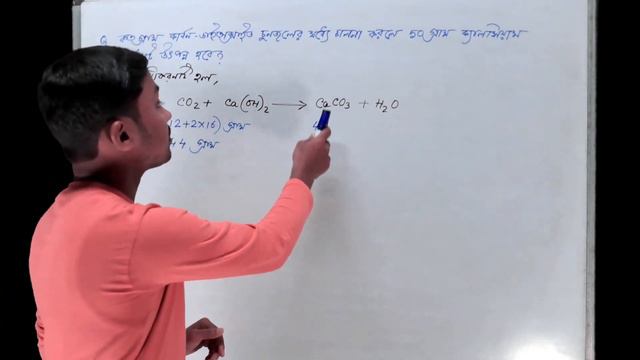 Q. কত গ্রাম কার্বন-ডাইঅক্সাইড চুনজলের মধ্যে চালনা করলে 50 গ্রাম ক্যালসিয়াম
উৎপন্ন হবে?
হল,
CO₂ + Ca(OH)₂ ⟶ CaCO₃ + H₂O
12+2×16) গ্রাম
44 গ্রাম